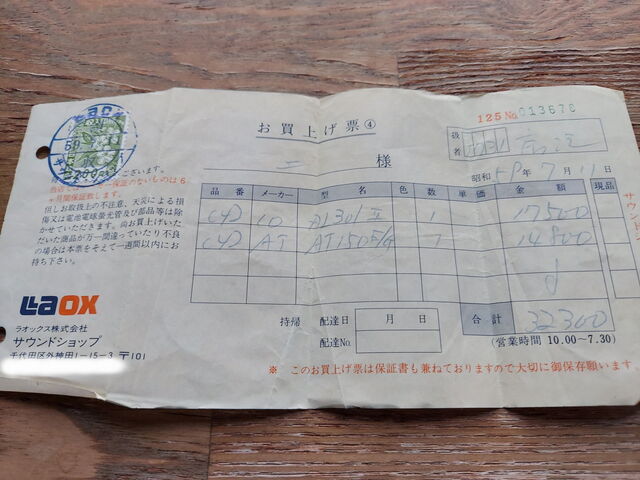 お買上げ票④
125 No. 013676
様
扱者
昭和 59 7 11日
ございます。
保証のないものは6
ヶ月間保証致します。
但しお取扱上の不注意、天災による損
傷又は電池電球螢光管及び部品等は除
かせていただきます。尚お買上げいた
だいた商品が万一間違っていたり不良
の場合は本票をそえて一週間以内にお
持ち下さい。
品番 メーカー 型名 色 数 単価 金額 現品
1 17500
AT AT150E/G 1 14800
合計 32300
LAOX
ラオックス株式会社
サウンドショップ
千代田区外神田1-15-3 〒101
持帰 配達日 月 日
配達No.
(営業時間 10.00~7.30)
※ このお買上げ票は保証書も兼ねておりますので大切に御保存願います。
サウンド